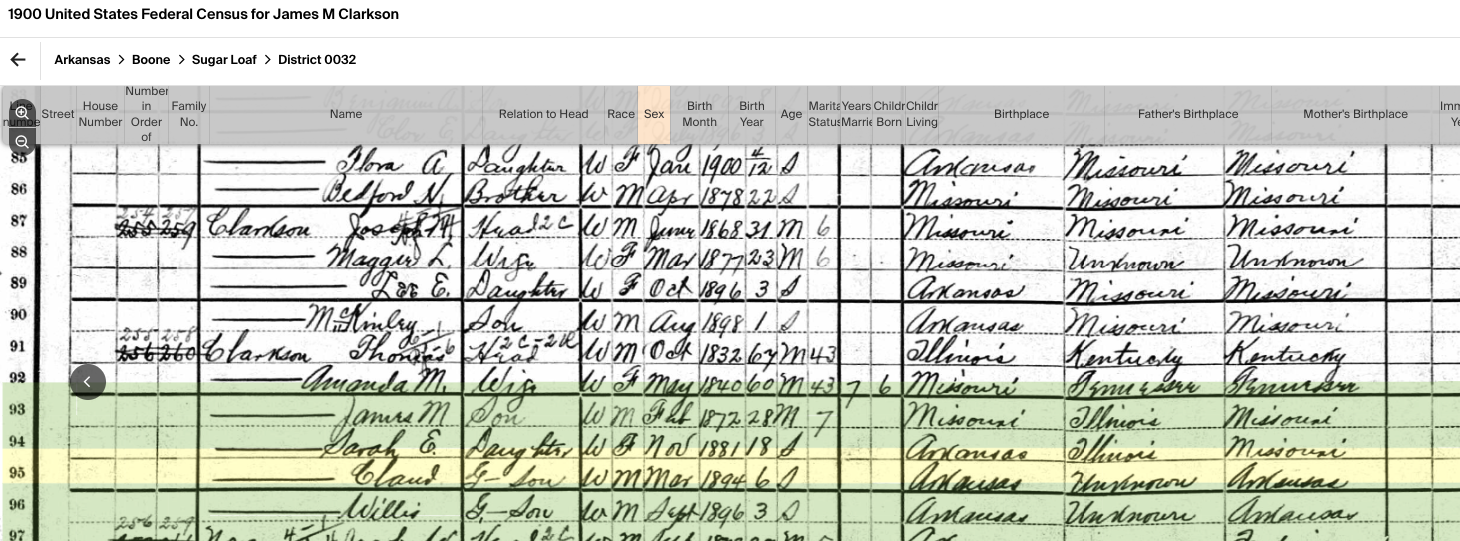 1900 United States Federal Census for James M Clarkson
Arkansas > Boone > Sugar Loaf > District 0032
Line Street House Number Number in Order of Family No. Name Relation to Head Race Sex Birth Month Birth Year Age Marita Status Years Marrie Childr Born Childr Living Birthplace Father's Birthplace Mother's Birthplace Imm Ye
85 Flora A Daughter W F Jan 1900 4/12 S Arkansas Missouri Missouri
86 Bedford H, Brother W M Apr 1878 22 S Missouri Missouri Missouri
254 257
87 255 259 Clarkson Joseph Head W M June 1868 31 M 6 Missouri Missouri Missouri
88 Maggie L. Wife W F Mar 1877 23 M 6 Missouri Unknown Unknown
89 E. Daughter W F Oct 1896 3 S Arkansas Missouri Missouri
90 McKinley Son W M Aug 1898 1 S Arkansas Missouri Missouri
255 258
91 256 260 Clarkson Thomas Head W M Oct 1832 67 M 43 Illinois Kentucky Kentucky
92 Amanda M. Wife W F May 1840 60 M 43 7 6 Missouri Tennessee Tennessee
93 James M Son W M Feb 1872 28 M 7 Missouri Illinois Missouri
94 Sarah E. Daughter W F Nov 1881 18 S Arkansas Illinois Missouri
95 Claud G-Son W M Mar 1894 6 S Arkansas Unknown Arkansas
96 Willis G-Son W M Sept 1896 3 S Arkansas Unknown Arkansas
256 259
97